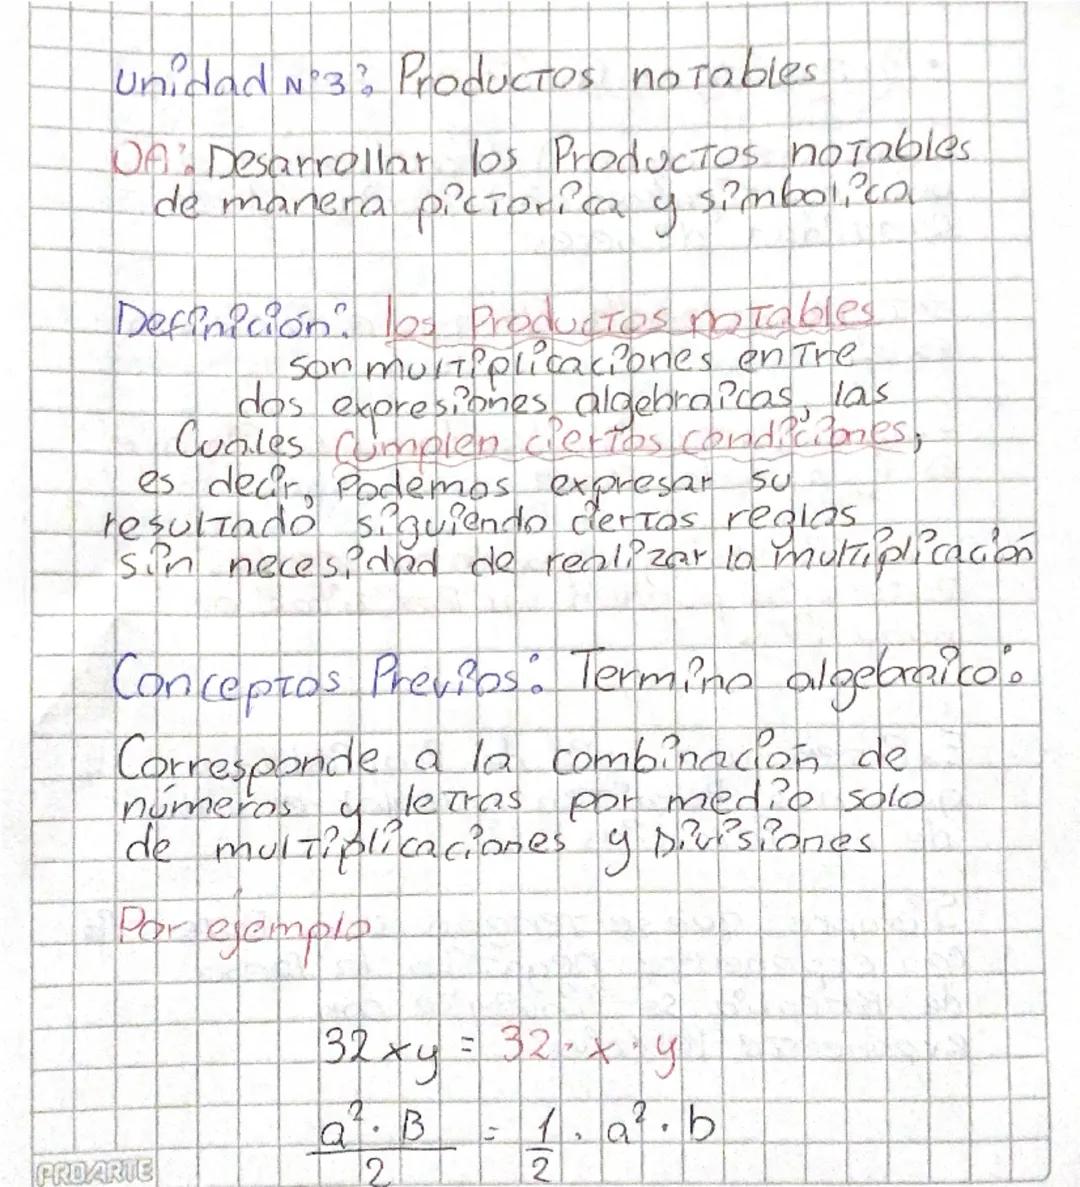 Unidad N°3: Productos notables
OA: Desarrollar los Productos notables
de manera pictorica y simbolica
Definición: los Productos notables
son multiplicaciones entre
dos expresiones algebraicas, las
Cuales cumplen ciertas condiciones,
es decir, Podemos expresar su
resultado siguiendo ciertas reglas
sin necesidad de realizar la multiplicación
Conceptos Previos: Termino algebraico:
Corresponde a la combinación de
números y letras por medio solo
de multiplicaciones y Divisiones
Por ejemplo
32xy = 32·x·y
a²·B/2 = 1/2 · a²·b
PROARTE